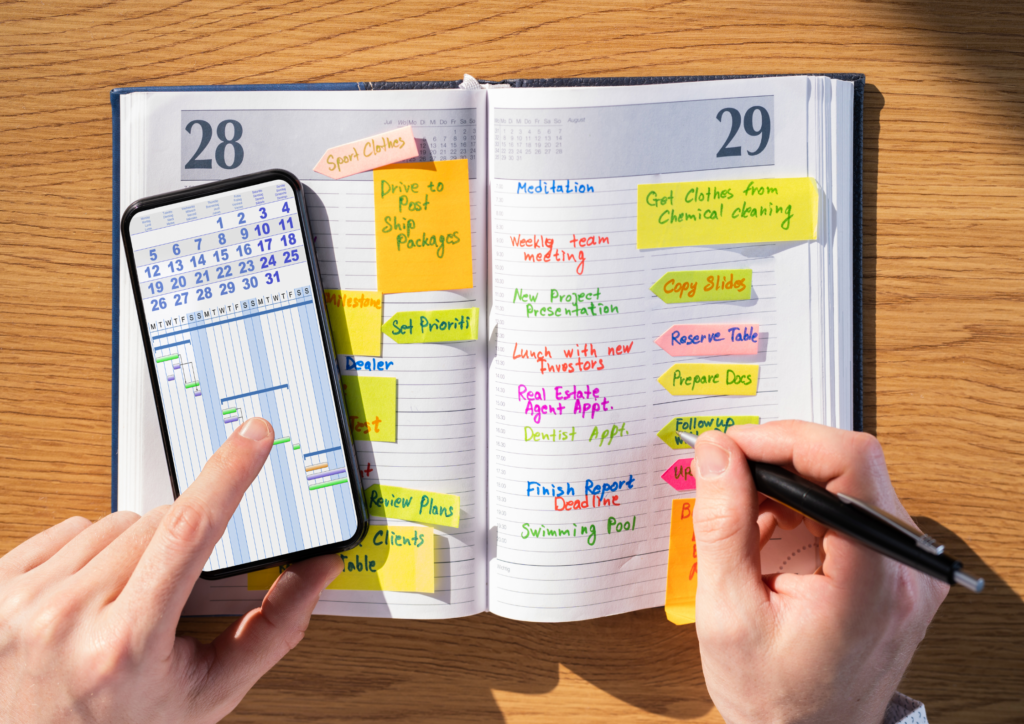 28
Sport Clothes
Drive to
Post
Ship
Packages
Milestone
Set Prioriti
Dealer
Test
Review Plans
Clients
Table
1 2 3 4
5 6 7 8 9 10 11
12 13 14 15 16 17 18
19 20 21 22 23 24 25
26 27 28 29 30 31
M T W T F S S M T W T F S S M T W T F S S
August
29
Meditation
Weekly team
meeting
New Project
Presentation
Lunch with new
Investors
Real Estate
Agent Appt.
Dentist Appt.
Finish Report
Deadline
Swimming Pool
Get Clothes from
Chemical cleaning
Copy Slides
Reserve Table
Prepare Docs
Follow up